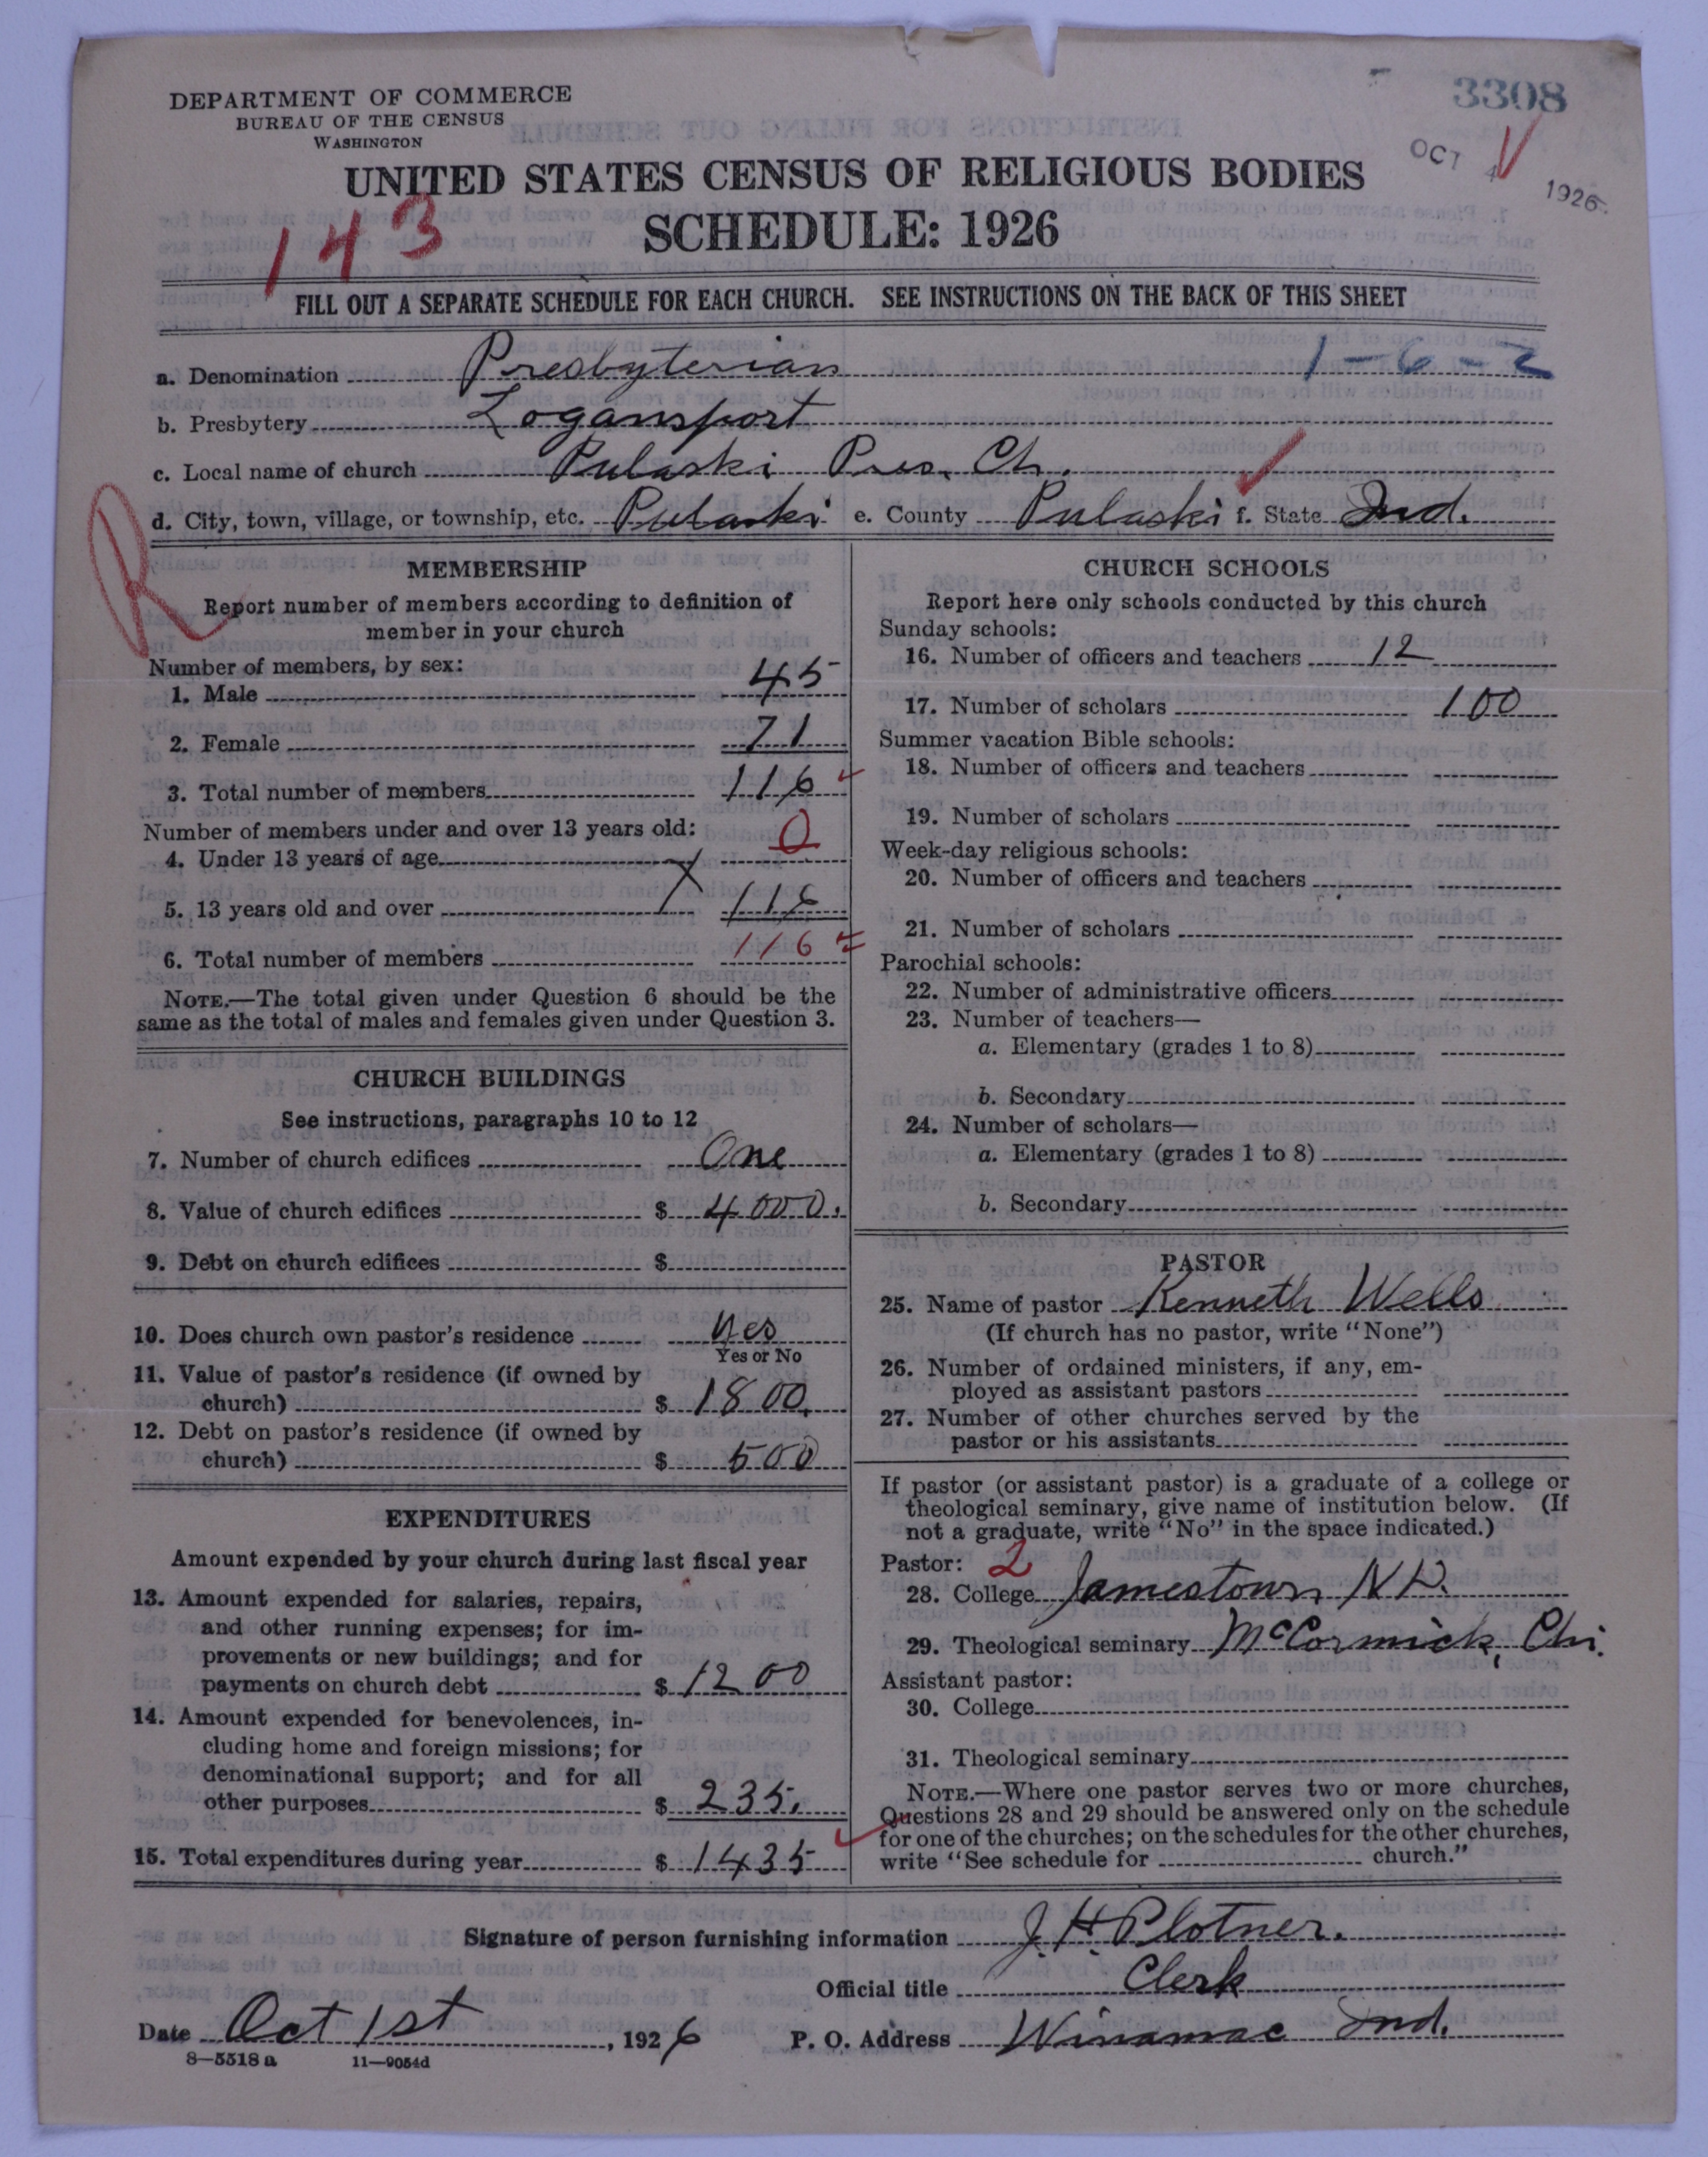 3308
DEPARTMENT OF COMMERCE
BUREAU OF THE CENSUS
WASHINGTON
OCT 4 1926
UNITED STATES CENSUS OF RELIGIOUS BODIES
SCHEDULE: 1926
143
FILL OUT A SEPARATE SCHEDULE FOR EACH CHURCH. SEE INSTRUCTIONS ON THE BACK OF THIS SHEET
a. Denomination Presbyterian 1-6-2
b. Presbytery Logansport
c. Local name of church Pulaski Pres. Ch.
d. City, town, village, or township, etc. Pulaski e. County Pulaski f. State Ind.
R
MEMBERSHIP
Report number of members according to definition of
member in your church
Number of members, by sex:
1. Male 45
2. Female 71
3. Total number of members 116
Number of members under and over 13 years old:
4. Under 13 years of age 0
5. 13 years old and over 116
6. Total number of members 116
NOTE.—The total given under Question 6 should be the
same as the total of males and females given under Question 3.
CHURCH BUILDINGS
See instructions, paragraphs 10 to 12
7. Number of church edifices One
8. Value of church edifices $ 4000.
9. Debt on church edifices $
10. Does church own pastor's residence yes
Yes or No
11. Value of pastor's residence (if owned by
church) $ 1800.
12. Debt on pastor's residence (if owned by
church) $ 500
EXPENDITURES
Amount expended by your church during last fiscal year
13. Amount expended for salaries, repairs,
and other running expenses; for im-
provements or new buildings; and for
payments on church debt $ 1200
14. Amount expended for benevolences, in-
cluding home and foreign missions; for
denominational support; and for all
other purposes $ 235.
15. Total expenditures during year $ 1435
CHURCH SCHOOLS
Report here only schools conducted by this church
Sunday schools:
16. Number of officers and teachers 12
17. Number of scholars 100
Summer vacation Bible schools:
18. Number of officers and teachers
19. Number of scholars
Week-day religious schools:
20. Number of officers and teachers
21. Number of scholars
Parochial schools:
22. Number of administrative officers
23. Number of teachers—
a. Elementary (grades 1 to 8)
b. Secondary
24. Number of scholars—
a. Elementary (grades 1 to 8)
b. Secondary
PASTOR
25. Name of pastor Kenneth Wells
(If church has no pastor, write "None")
26. Number of ordained ministers, if any, em-
ployed as assistant pastors
27. Number of other churches served by the
pastor or his assistants
If pastor (or assistant pastor) is a graduate of a college or
theological seminary, give name of institution below. (If
not a graduate, write "No" in the space indicated.)
Pastor: 2
28. College Jamestown, N.D.
29. Theological seminary McCormick, Chi.
Assistant pastor:
30. College
31. Theological seminary
NOTE.—Where one pastor serves two or more churches,
Questions 28 and 29 should be answered only on the schedule
for one of the churches; on the schedules for the other churches,
write "See schedule for church."
Signature of person furnishing information J. H. Plotner.
Official title Clerk
Date Oct 1st, 1926 P. O. Address Winamac Ind.
8—5518 a 11—9054d